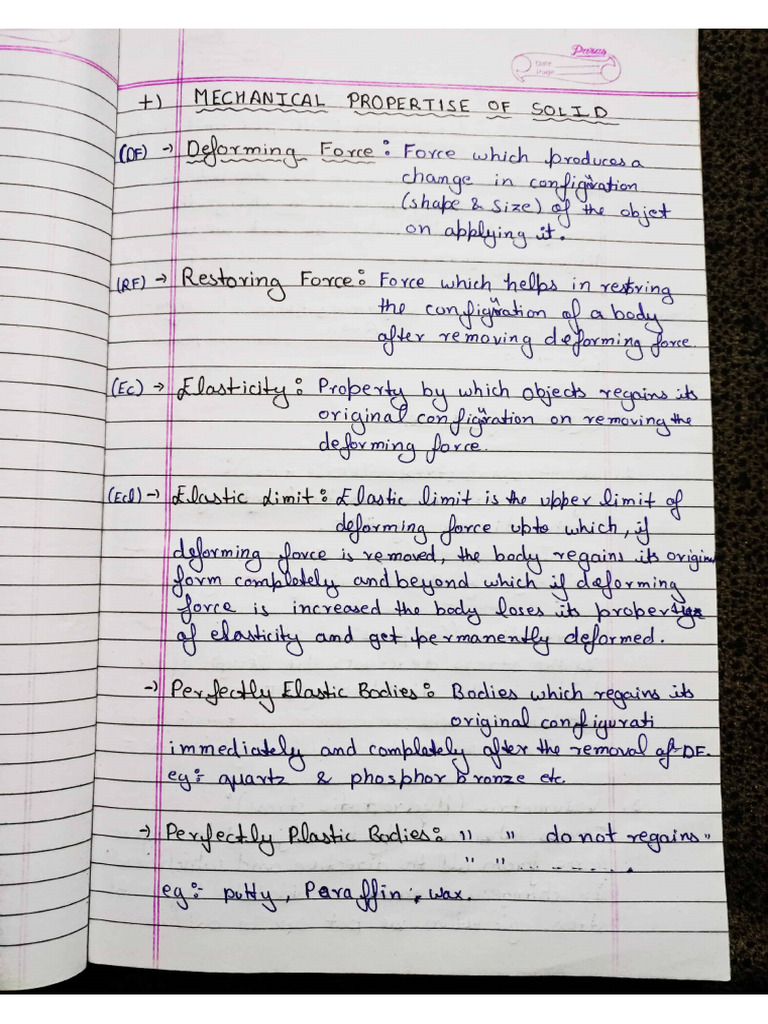 Prerna
Date
Page
+) MECHANICAL PROPERTISE OF SOLID
(DF) → Deforming Force : Force which produces a
change in configuration
(shape & size) of the objet
on applying it.
(RF) → Restoring Force : Force which helps in restoring
the configuration of a body
after removing deforming force.
(Ec) → Elasticity : Property by which objects regains its
original configuration on removing the
deforming force.
(Ecl) → Elastic Limit : Elastic limit is the upper limit of
deforming force upto which, if
deforming force is removed, the body regains its origin
form completely and beyond which if deforming
force is increased the body loses its
of elasticity and get permanently deformed.
→ Perfectly Elastic Bodies : Bodies which regains its
original configurati
immediately and completely after the removal of DF.
eg:- quartz & phosphor bronze etc.
→ Perfectly Plastic Bodies : " " do not regains "
" " .........
eg:- putty, Paraffin, wax.